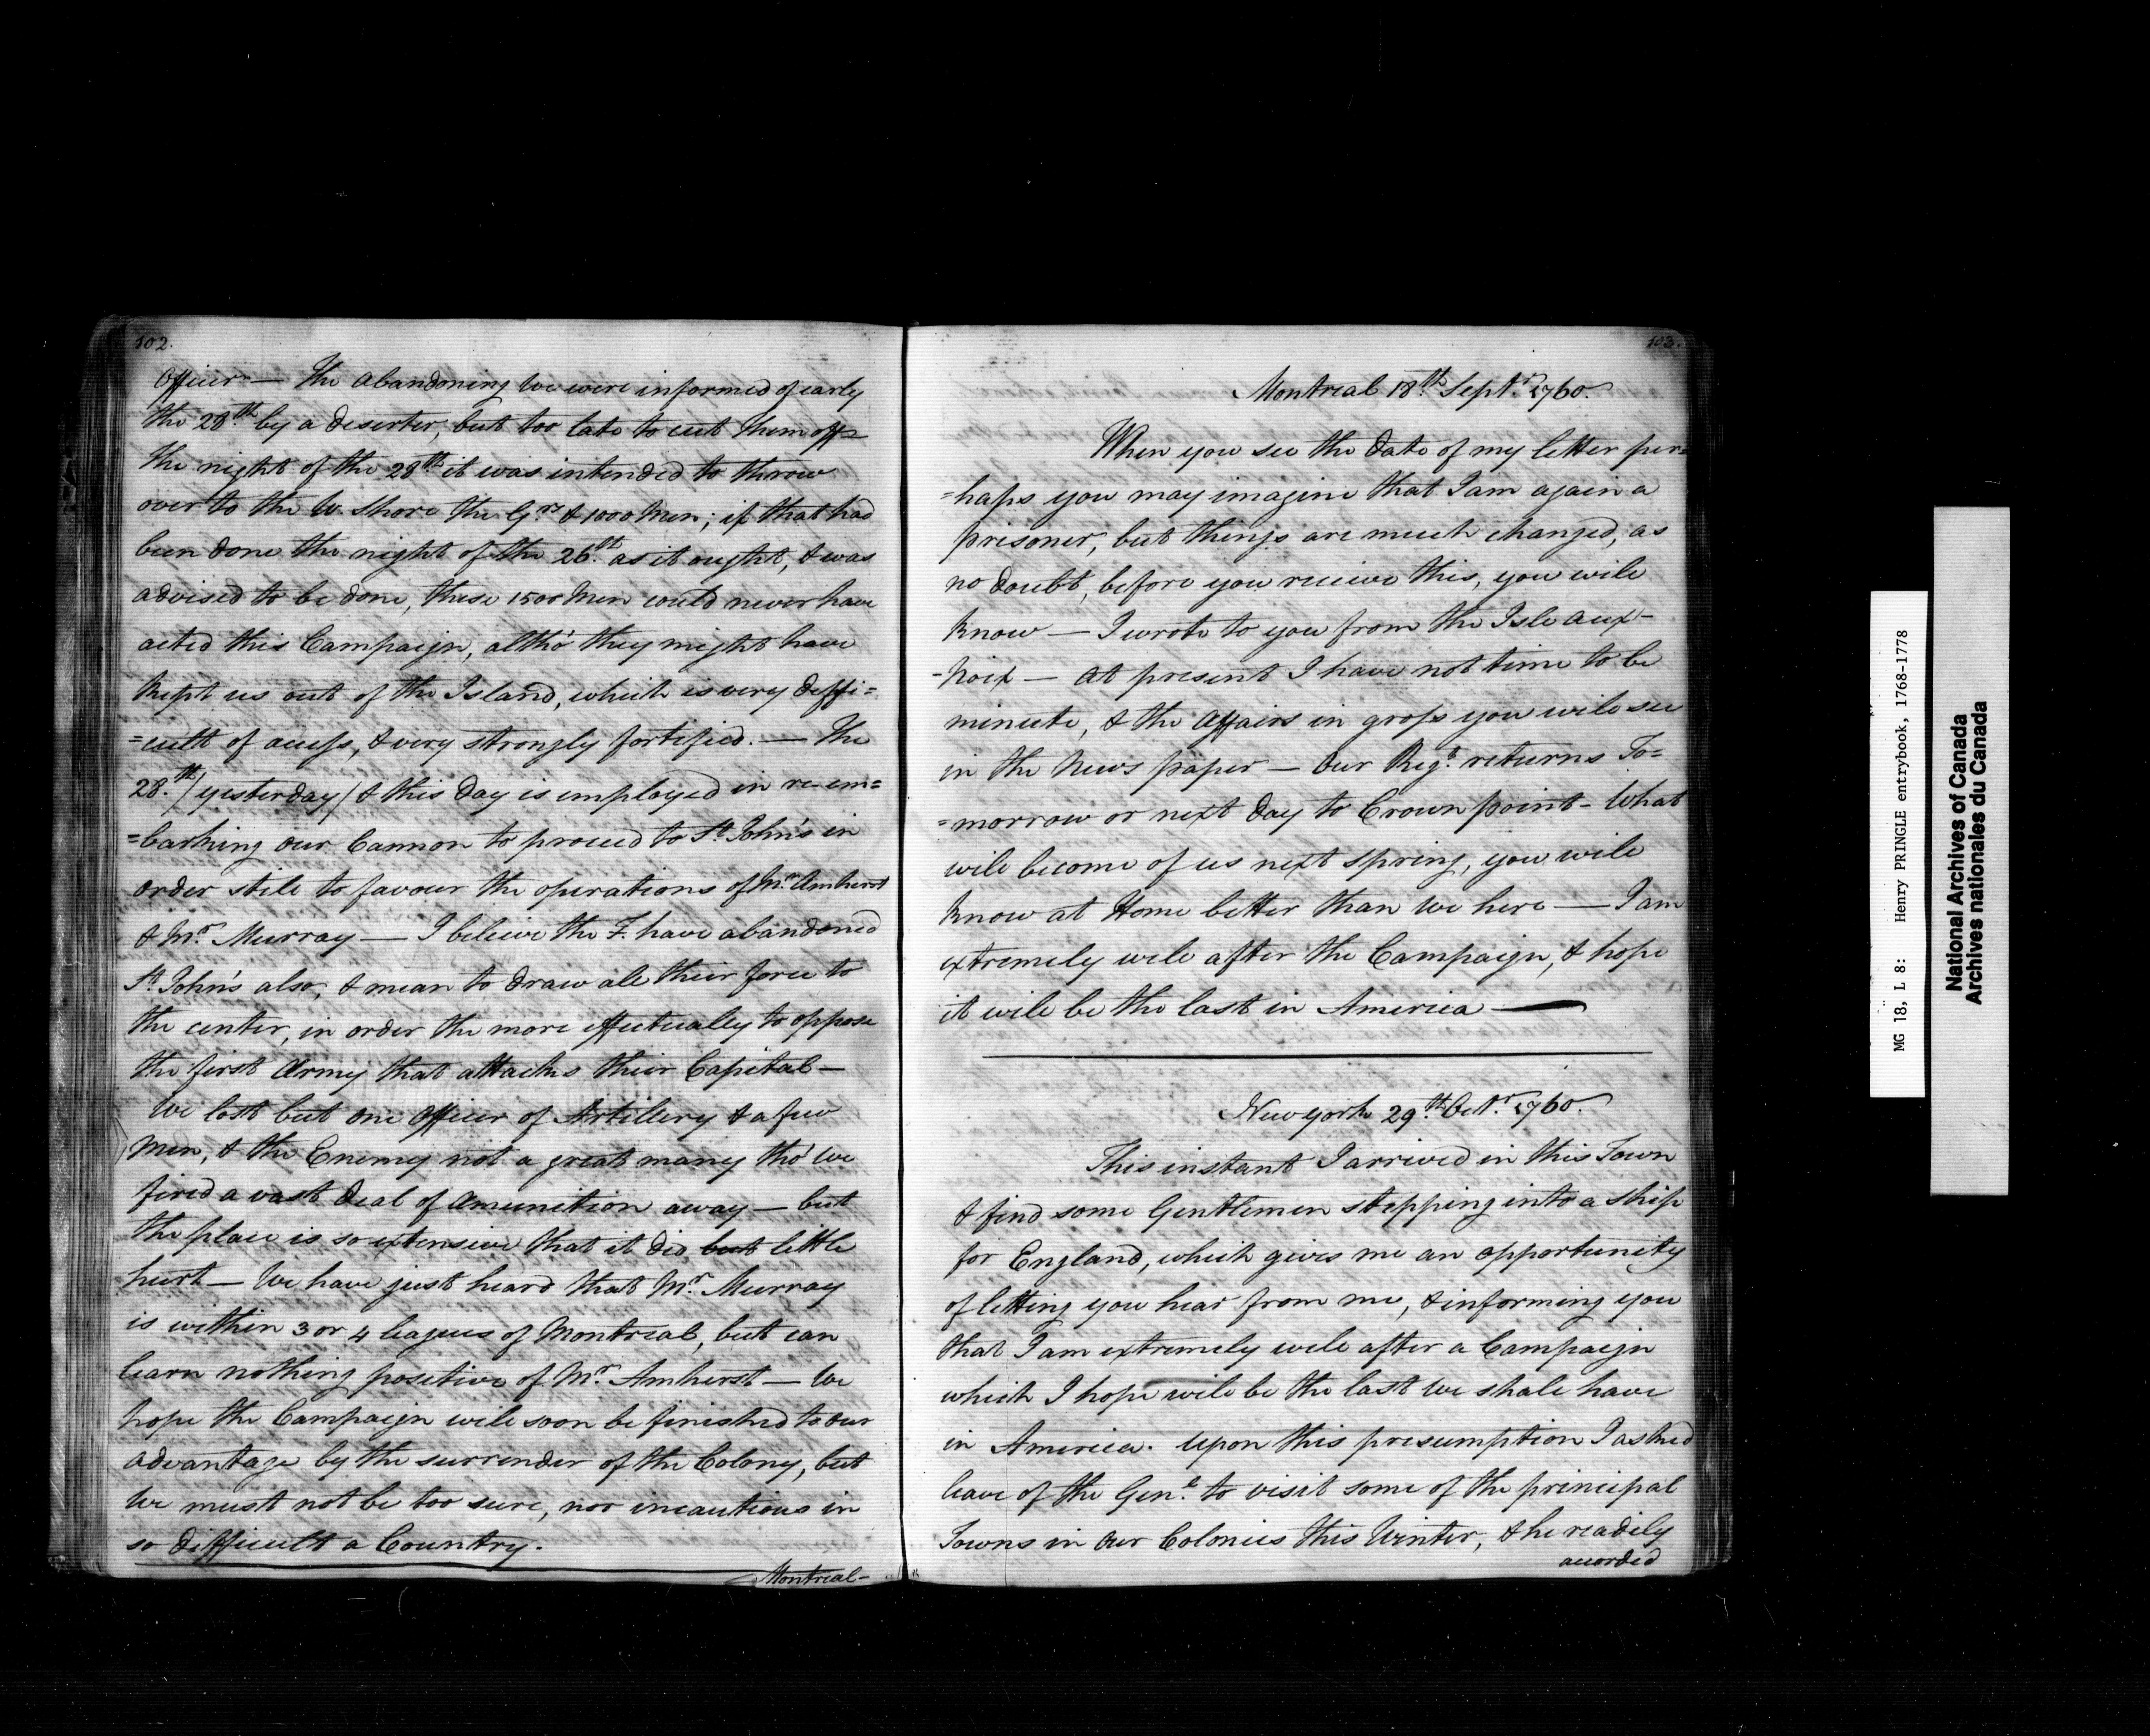 102.
Officer — The abandoning We were informed of early
the 28th by a deserter, but too late to cut them off —
the night of the 28th it was intended to throw
over to the W. Shore the Grs & 1000 Men; if that had
been done the night of the 26th as it ought, & was
advised to be done, these 1500 Men could never have
acted this Campaign, altho' they might have
kept us out of the Island, which is very diffi=
=cult of access, & very strongly fortified. — The
28th (yesterday) & this day is employed in re-em=
=barking our Cannon to proceed to St. John's in
order still to favour the operations of Mr. Amherst
& Mr. Murray — I believe the F. have abandoned
St. John's also, & mean to draw all their force to
the center, in order the more effectually to oppose
the first Army that attacks their Capital —
We lost but one Officer of Artillery & a few
Men, & the Enemy not a great many tho' We
fired a vast deal of Amunition away — but
the place is so extensive that it did but little
hurt — We have just heard that Mr. Murray
is within 3 or 4 leagues of Montreal, but can
learn nothing positive of Mr. Amherst — We
hope the Campaign will soon be finished to our
advantage by the surrender of the Colony, but
We must not be too sure, nor incautious in
so difficult a Country.
Montreal —
103.
Montreal 18th Septr. 1760.
When you see the date of my letter per=
=haps you may imagine that I am again a
prisoner, but things are much changed, as
no doubt, before you receive this, you will
know — I wrote to you from the Isle aux-
-Noix — at present I have not time to be
minute, & the Affairs in gross you will see
in the News paper — Our Regt. returns To=
=morrow or next day to Crown point — What
will become of us next spring, you will
know at Home better than We here — I am
extremely well after the Campaign, & hope
it will be the last in America —
New york 29th Octr. 1760.
This instant I arrived in this Town
& find some Gentlemen stepping into a ship
for England, which gives me an opportunity
of letting you hear from me, & informing you
that I am extremely well after a Campaign
which I hope will be the last we shall have
in America. Upon this presumption I asked
leave of the Genl. to visit some of the principal
Towns in our Colonies this Winter, & he readily
accorded
MG 18, L 8: Henry PRINGLE entrybook, 1768-1778
National Archives of Canada
Archives nationales du Canada